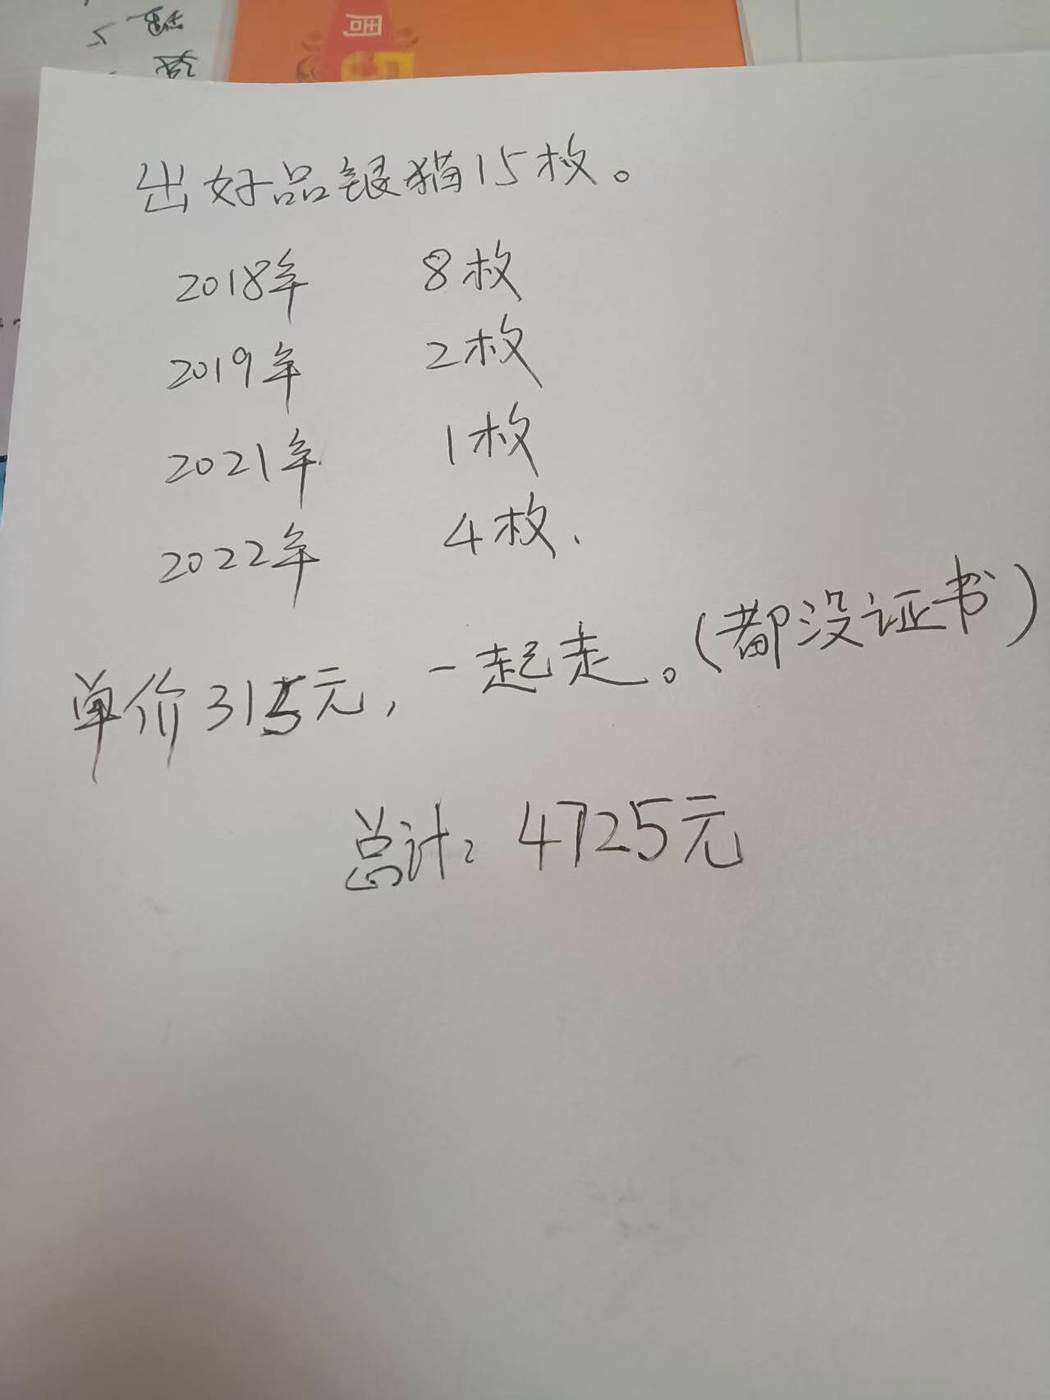 出好品银猫15枚。
2018年 8枚
2019年 2枚
2021年 1枚
2022年 4枚、
单价315元，一起走。（都没证书）
总计：4725元